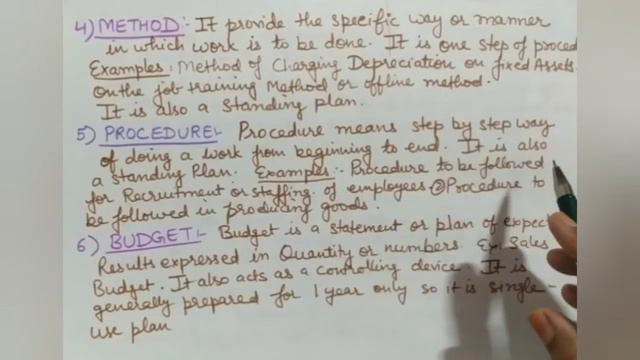 4) METHOD:- It provide the specific way or manner
in which work is to be done. It is one step of proced
Examples: Method of Charging Depreciation on fixed Assets.
On the job training Method or offline method.
It is also a Standing plan.
5) PROCEDURE:- Procedure means step by step way
of doing a work from beginning to end. It is also
a standing Plan. Examples:- Procedure to be followed
for Recruitment or staffing of employees ② Procedure to
be followed in producing goods.
6) BUDGET:- Budget is a statement or plan of expect
Results expressed in Quantity or numbers. Ex. Sales
Budget. It also acts as a controlling device. It is
generally prepared for 1 year only so it is single-
use plan